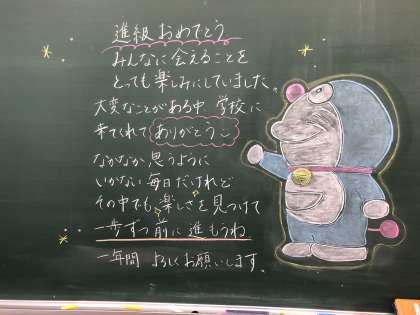 進級おめでとう
みんなに会えることを
とっても楽しみにしていました。
大変なことがある中、学校に
来てくれてありがとう。
なかなか思うように
いかない毎日だけれど
その中でも楽しさを見つけて
一歩ずつ前に進もうね
一年間 よろしくお願いします。